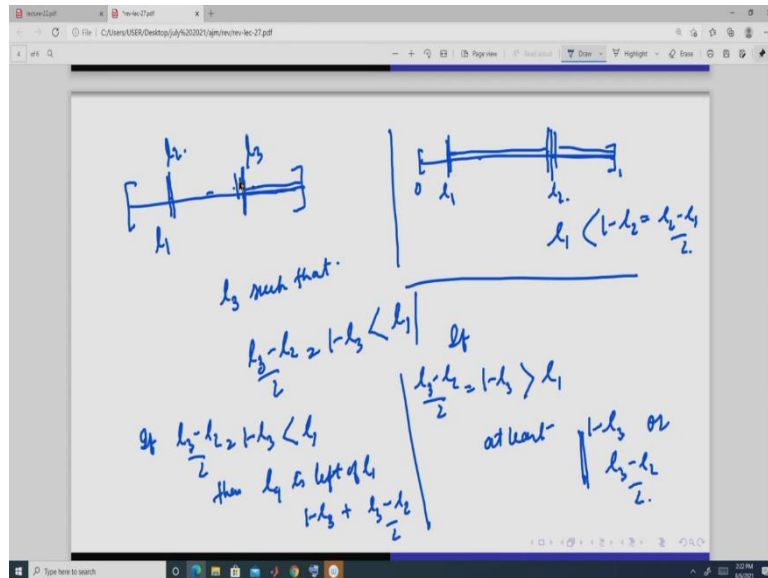 lecture-22.pdf
*rev-lec-27.pdf
File | C:/Users/USER/Desktop/july%202021/ajm/rev/rev-lec-27.pdf
4 of 6
Page view
Read aloud
Draw
Highlight
Erase
l2.
l3
l1
l3 such that.
(l3-l2)/2 = 1-l3 < l1
If (l3-l2)/2 = 1-l3 < l1
then l4 is left of l1
1-l3 + (l3-l2)/2
0 l1 l2. 1
l1 < 1-l2 = (l2-l1)/2.
If
(l3-l2)/2 = 1-l3 > l1
at least 1-l3 or
(l3-l2)/2.
Type here to search
2:12 PM
8/5/2021